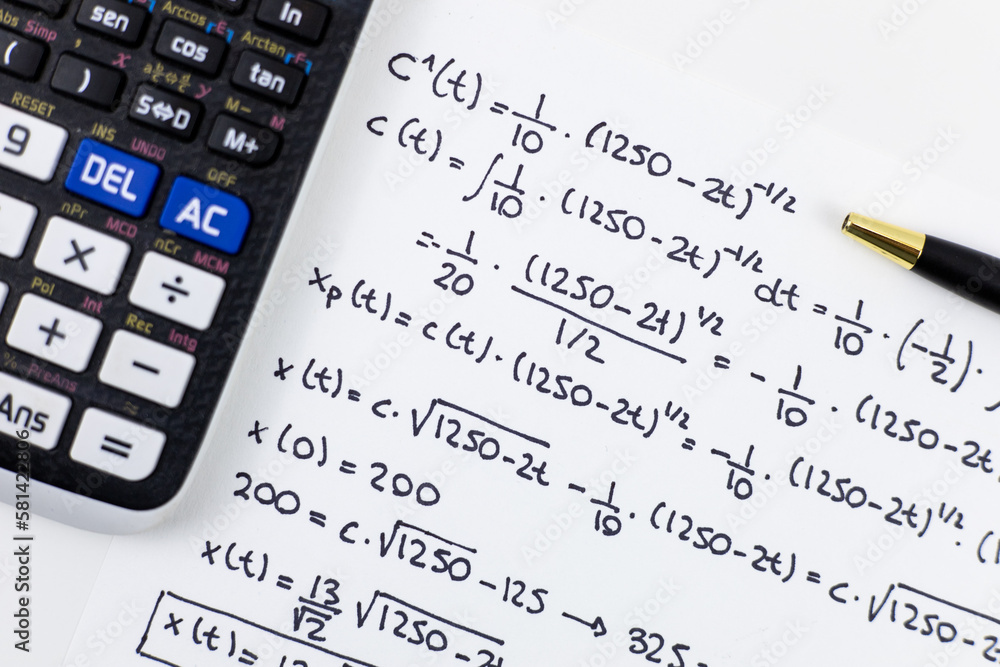 Abs
Arccos
Arctan
Simp
sen
cos
tan
ln
(
)
S⇔D
M−
M
M+
RESET
INS
UNDO
OFF
9
DEL
AC
nPr
MCD
nCr
MCM
×
÷
Pol
Int
Rec
Intg
+
−
PreAns
Ans
=
C'(t) = 1/10 · (1250 − 2t)^-1/2
c(t) = ∫ 1/10 · (1250 − 2t)^-1/2 dt = 1/10 · (−1/2) ·
= − 1/20 · (1250 − 2t)^1/2 / 1/2 = − 1/10 · (1250 − 2t
xp(t) = c(t) · (1250 − 2t)^1/2 = − 1/10 · (1250 − 2t)^1/2 · (1
x(t) = c · √1250 − 2t − 1/10 · (1250 − 2t) = c · √1250 − 2
x(0) = 200
200 = c · √1250 − 125 → 325
x(t) = 13/√2 √1250 − 2t
x(t) = 13
Adobe Stock | #581422806